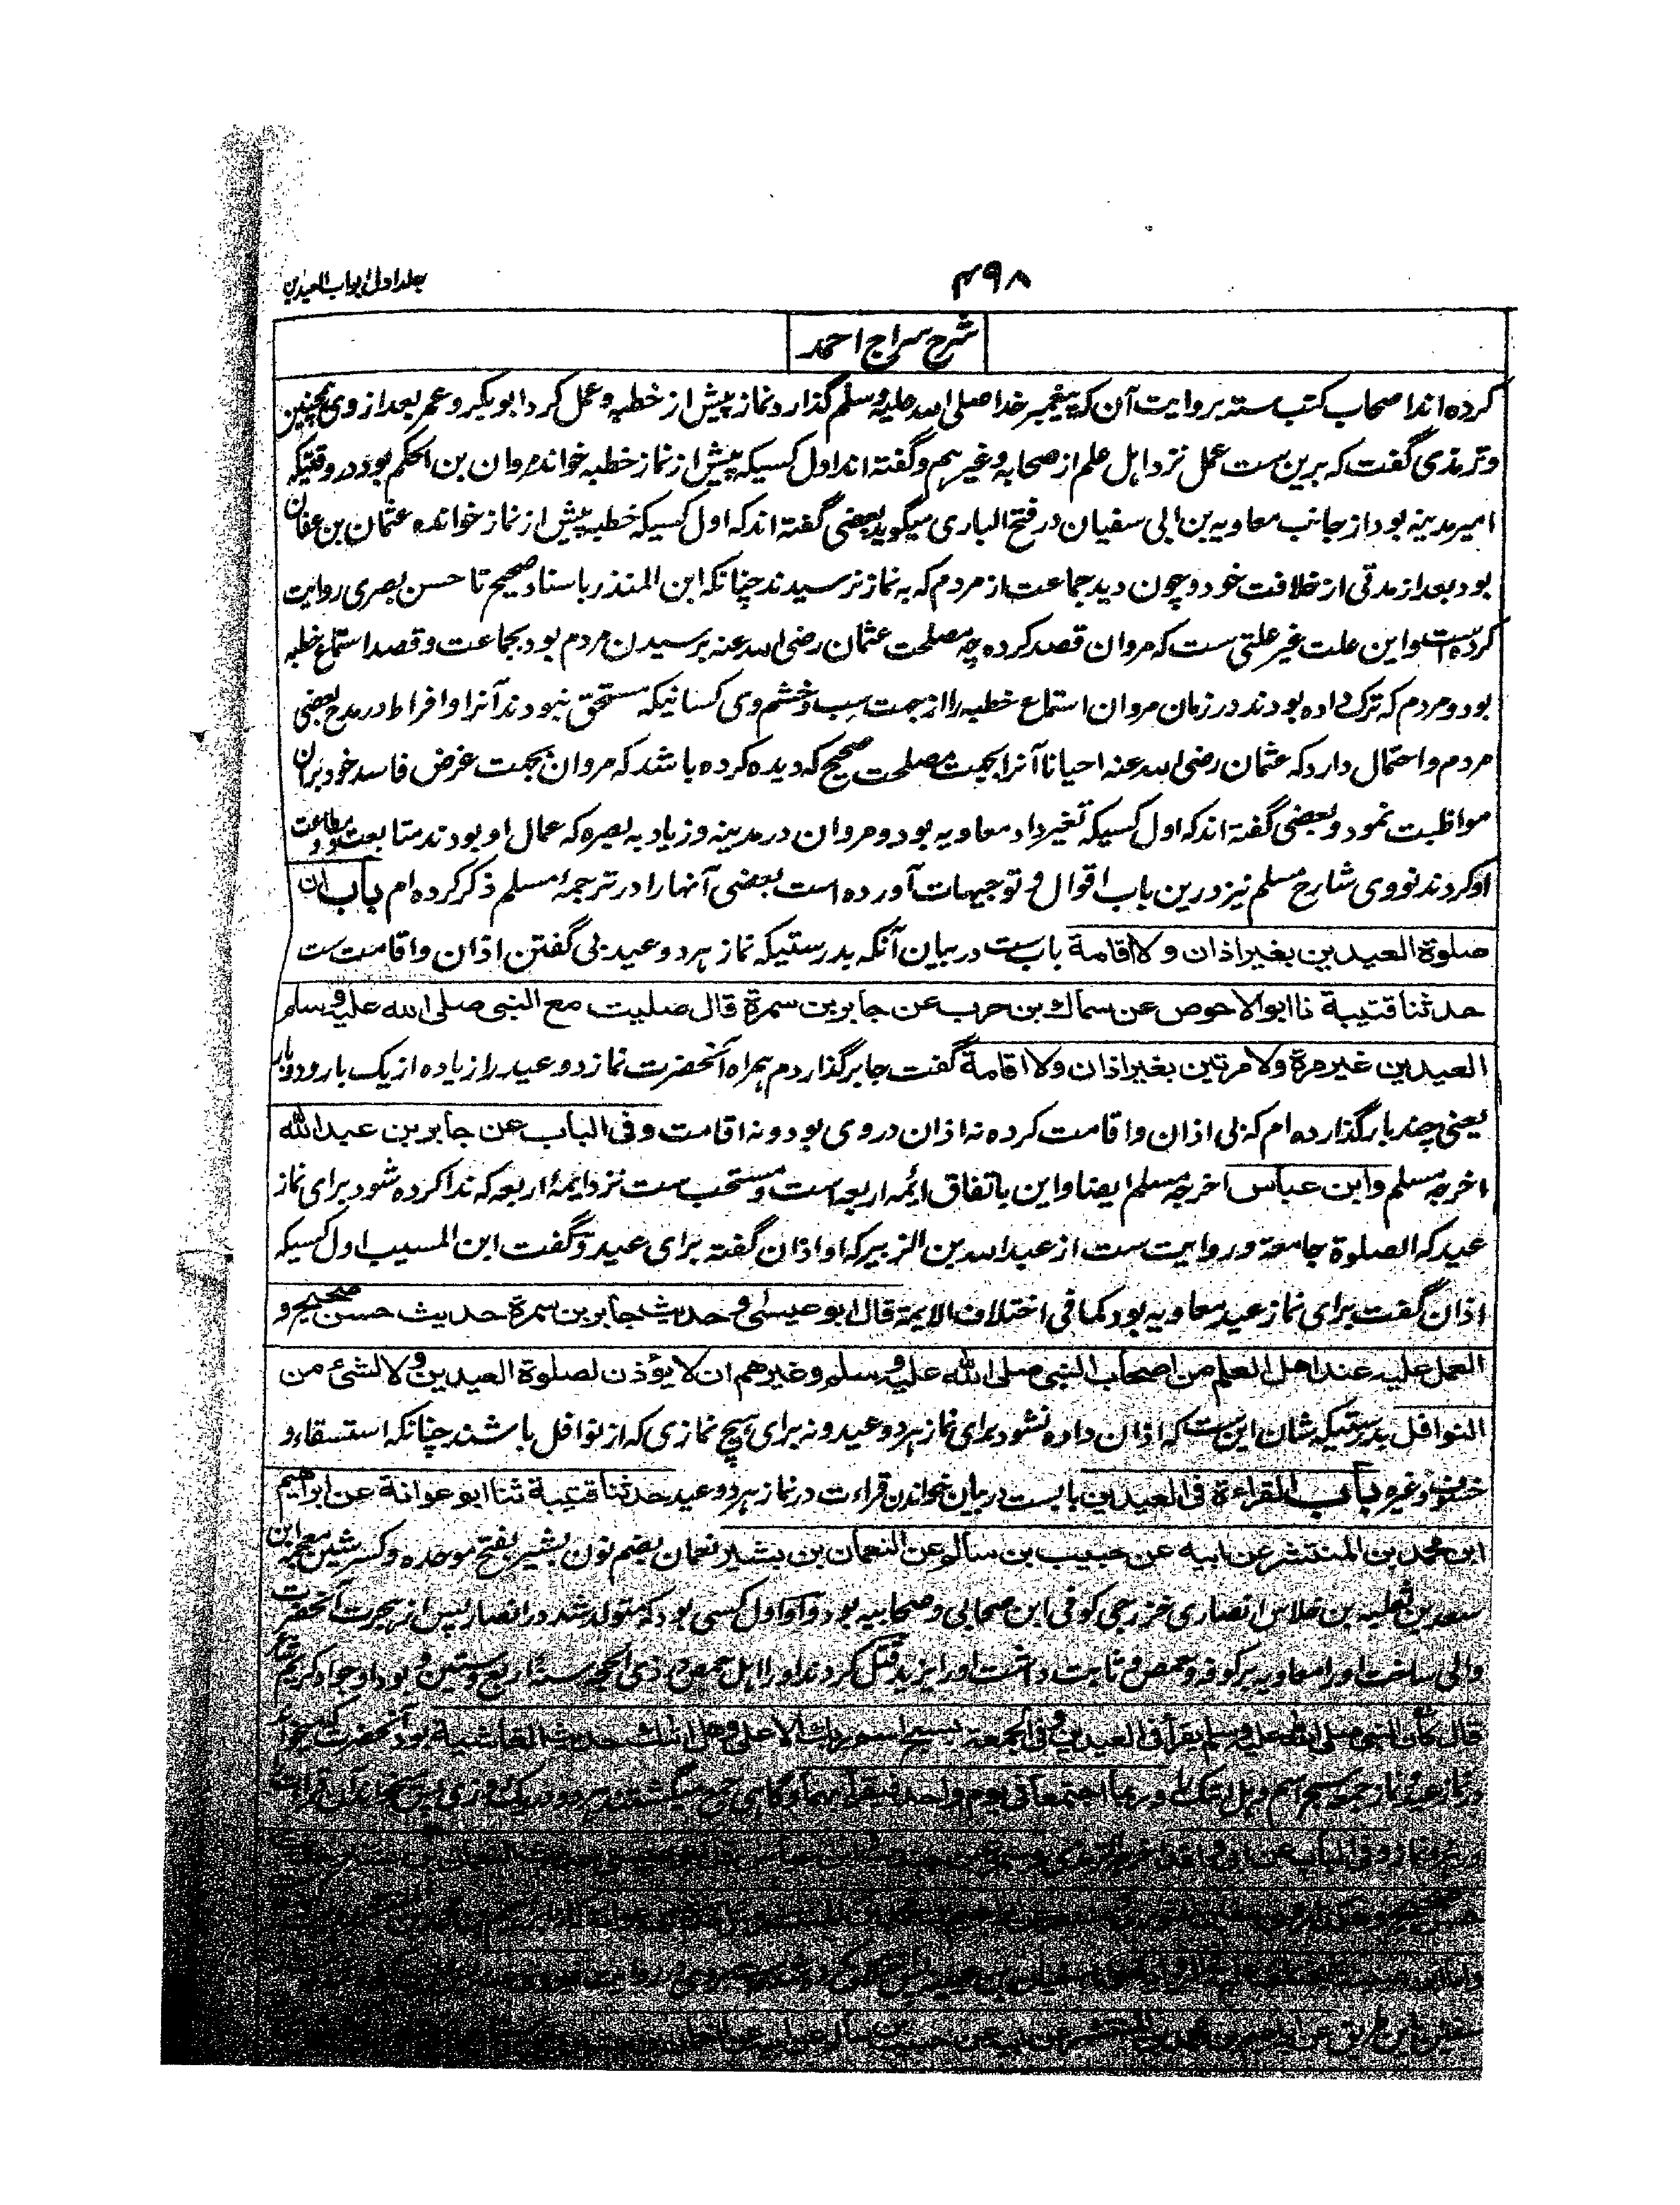 جلد اول ابواب العیدین
۴۹۸
شرح سراج احمد
کرده اند اصحاب کتب سته بروایت آن که پیغمبر خدا صلی الله علیه وسلم گذارد نماز پیش از خطبه و عمل کرد ابوبکر و عمر بعد از وی همچنین
و ترمذی گفت که برین ست عمل نزد اهل علم از صحابه و غیرهم و گفته اند اول کسیکه پیش از نماز خطبه خواند مروان بن الحکم بود در وقتیکه
امیر مدینه بود از جانب معاویه بن ابی سفیان در فتح الباری میگوید بعضی گفته اند که اول کسیکه خطبه پیش از نماز خوانده عثمان بن عفان
بود بعد از مدتی از خلافت خود و چون دید جماعت از مردم که به نماز نرسیدند چنانکه ابن المنذر باسناد صحیح تا حسن بصری روایت
کرده است و این علت غیر علتی ست که مروان قصد کرده چه مصلحت عثمان رضی الله عنه برسیدن مردم بود بجماعت و قصد استماع خطبه
بود و مردم که ترک داده بودند در زمان مروان استماع خطبه را از جهت سب و خشم وی کسانیکه مستحق نبودند آنرا و افراط در مدح بعضی
مردم و احتمال دارد که عثمان رضی الله عنه احیانا آنرا بجهت مصلحت صحیح که دیده کرده باشد که مروان بجهت غرض فاسد خود بران
مواظبت نمود و بعضی گفته اند که اول کسیکه تغیر داد معاویه بود و مروان در مدینه و زیاد به بصره که عمال او بودند متابعت و مطاوعت
او کردند نووی شارح مسلم نیز درین باب اقوال و توجیهات آورده است بعضی آنها را در ترجمهٔ مسلم ذکر کرده ام باب ان
صلوة العیدین بغیر اذان ولا اقامة باب ست در بیان آنکه بدرستیکه نماز هر دو عید بی گفتن اذان و اقامت ست
حدثنا قتیبة نا ابوالاحوص عن سماك بن حرب عن جابر بن سمرة قال صلیت مع النبی صلی الله علیه وسلم
العیدین غیر مرة ولا مرتین بغیر اذان ولا اقامة گفت جابر گذاردم همراه آنحضرت نماز دو عید را زیاده از یک بار و دو بار
یعنی چند بار گذارده ام که بی اذان و اقامت کرده نه اذان در وی بود و نه اقامت وفی الباب عن جابر بن عبدالله
اخرجه مسلم وابن عباس اخرجه مسلم ایضا و این باتفاق ائمه اربعه است و مستحب ست نزد ایمهٔ اربعه که ندا کرده شود برای نماز
عید که الصلوة جامعة و روایت ست از عبدالله بن الزبیر که او اذان گفته برای عید و گفت ابن المسیب اول کسیکه
اذان گفت برای نماز عید معاویه بود کما فی اختلاف الایمة قال ابو عیسی و حدیث جابر بن سمرة حدیث حسن صحیح و
العمل علیه عند اهل العلم من اصحاب النبی صلی الله علیه وسلم وغیرهم ان لا یؤذن لصلوة العیدین ولا لشئ من
النوافل بدرستیکه شان این ست که اذان داده نشود برای نماز هر دو عید و نه برای هیچ نمازی که از نوافل باشند چنانکه استسقاء و
خسوف و غیره باب القراءة فی العیدین باب ست در بیان خواندن قراءت در نماز هر دو عید حدثنا قتیبة ثنا ابو عوانة عن ابراهیم
ابن محمد بن المنتشر عن ابیه عن حبیب بن سالم عن النعمان بن بشیر نعمان بضم نون بشیر بفتح موحده و کسر شین معجمه ابن
سعد بن ثعلبه بن خلاس انصاری خزرجی کوفی ابن صحابی و صحابیه بود و او اول کسی بود که متولد شد در انصار پس از هجرت آنحضرت
والی ساخت او را معاویه بر کوفه و حمص و ثابت داشت او را یزید قتل کردند او را اهل حمص فی ذی الحجه سنة اربع و ستین و بود او جواد کریم
قال کان النبی صلی الله علیه وسلم یقرأ فی العیدین وفی الجمعة بسبح اسم ربك الاعلی وهل اتٰك حدیث الغاشیة بود آنحضرت که میخواند
در نماز عید و نماز جمعه سبح اسم و هل اتٰك وربما اجتمعا فی یوم واحد فیقرأ بهما و گاهی جمع میگشتند هر دو در یک روزی پس میخواند آن